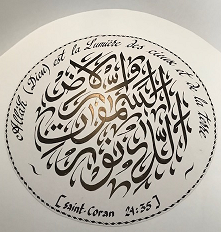 Allah (Dieu) est la Lumière des cieux et de la terre
الله نور السموات والأرض
[Saint-Coran 24:35]